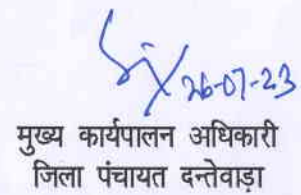 26-07-23
मुख्य कार्यपालन अधिकारी
जिला पंचायत दन्तेवाड़ा